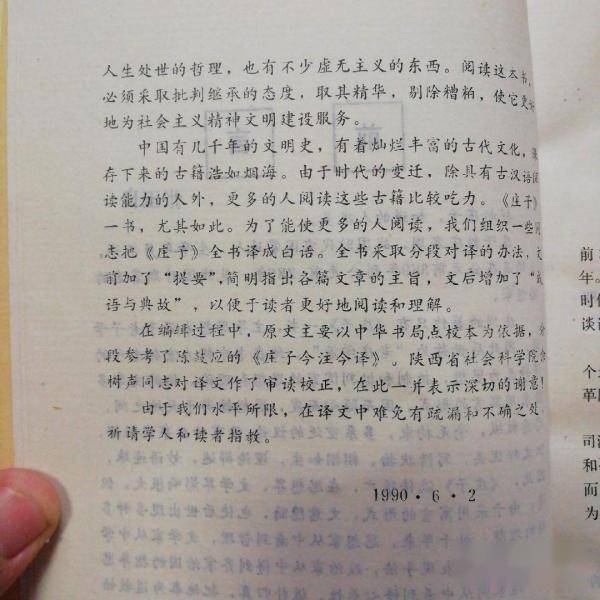 人生处世的哲理，也有不少虚无主义的东西。阅读这本书，
必须采取批判继承的态度，取其精华，剔除糟粕，使它更好
地为社会主义精神文明建设服务。
中国有几千年的文明史，有着灿烂丰富的古代文化，保
存下来的古籍浩如烟海。由于时代的变迁，除具有古汉语阅
读能力的人外，更多的人阅读这些古籍比较吃力。《庄子》
一书，尤其如此。为了能使更多的人阅读，我们组织一些同
志把《庄子》全书译成白话。全书采取分段对译的办法，文
前加了“提要”，简明指出各篇文章的主旨，文后增加了“成
语与典故”，以便于读者更好地阅读和理解。
在编缉过程中，原文主要以中华书局点校本为依据，分
段参考了陈鼓应的《庄子今注今译》。陕西省社会科学院
树声同志对译文作了审读校正，在此一并表示深切的谢意！
由于我们水平所限，在译文中难免有疏漏和不确之处，
祈请学人和读者指教。
1990·6·2
前
年。
时
谈
个
革
司
和
而
为